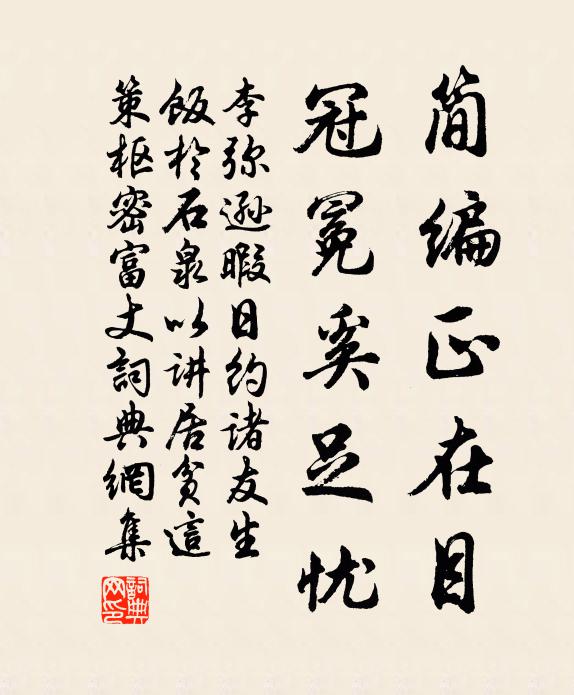 简编正在目
冠冕奚足忧
李弥逊暇日约诸友生
饭於石泉以讲居贫這
策枢密富丈詞典網集
詞典网印